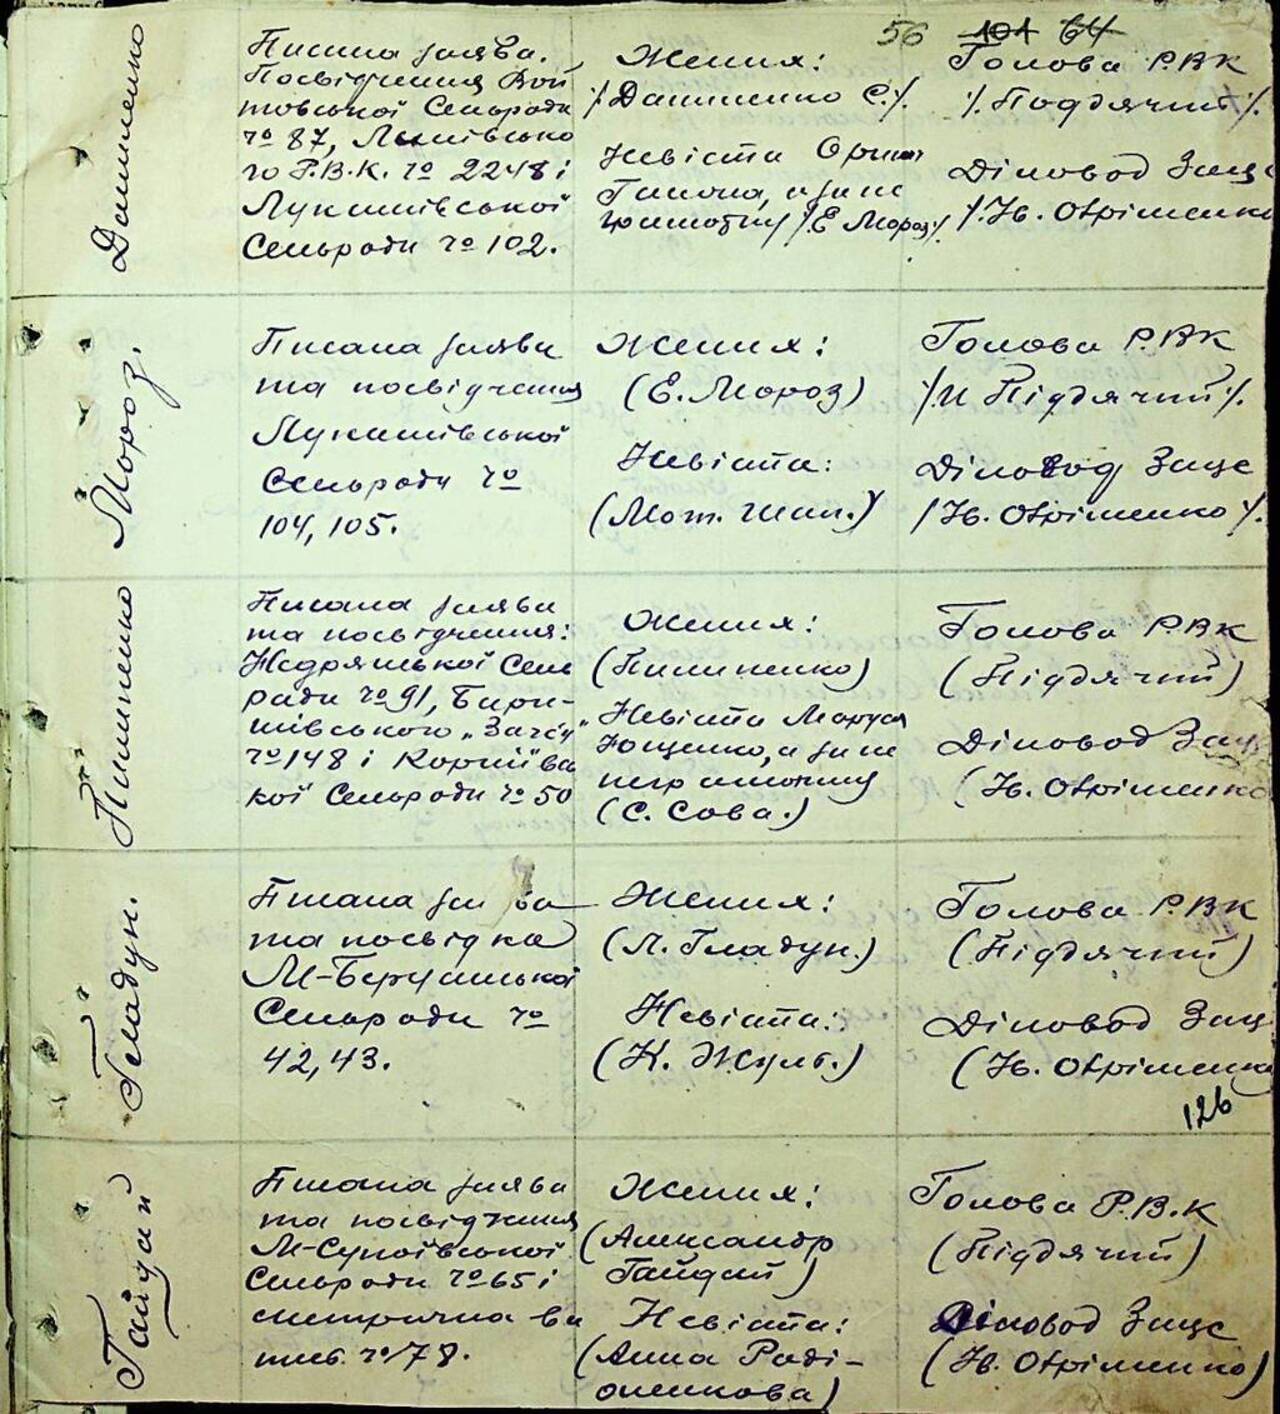 56 101 64
Данименко
Писана заява.
Посвідчення Вой
товської Сельради
№ 87, Лынівсько
го Р.В.К. № 2248 і
Лукашівської
Сельради № 102.
Жених:
/Данименко С./.
Невіста Орина
Ганона, а за не
грамотну /Е Мороз/.
Голова Р.ВК
/.Подзячий/.
Діловод Загс
/.Ів. Охріменко
Мороз.
Писана заява
та посвідчення
Лукашівської
Сельради №
104, 105.
Жених:
(Е. Мороз)
Невіста:
(Мот. Шап.)
Голова Р.ВК
/И Підзячий/.
Діловод Загс
/Ів. Охріменко/.
Пилипенко
Писана заява
та посвідчення:
Недрянської Сель
ради № 91, Бари-
шівського „Загсу"
№ 148 і Корніївсь
кої Сельради № 50
Жених:
(Пилипенко)
Невіста Маруся
Ющенко, а за не
неграмотну
(С. Сова.)
Голова Р.ВК
(Підзячий)
Діловод Загс
(Ів. Охріменко
Гладун.
Писана заява
та посвідка
М-Березанської
Сельради №
42, 43.
Жених:
(Л. Гладун.)
Невіста:
(К. Жуль.)
Голова Р.ВК
(Підзячий)
Діловод Загс
(Ів. Охріменко
126
Гайдай
Писана заява
та посвідчення
М-Супоївської
Сельради № 65 і
метрична ви
пис. № 78.
Жених:
(Александр
Гайдай)
Невіста:
(Анна Раді-
оненкова)
Голова Р.В.К
(Підзячий)
Діловод Загс
(Ів. Охріменко)